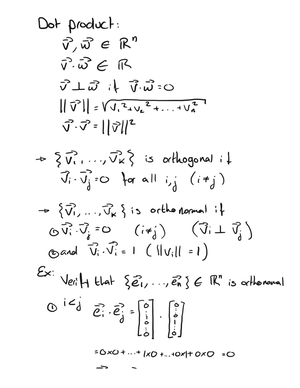 Dot product:
v⃗, w⃗ ∈ ℝⁿ
v⃗ · w⃗ ∈ ℝ
v⃗ ⊥ w⃗ if v⃗ · w⃗ = 0
||v⃗|| = √(v₁² + v₂² + ... + vₙ²)
v⃗ · v⃗ = ||v⃗||²
→ {v⃗₁, ..., v⃗ₖ} is orthogonal if
v⃗ᵢ · v⃗ⱼ = 0 for all i,j (i≠j)
→ {v⃗₁, ..., v⃗ₖ} is orthonormal if
① v⃗ᵢ · v⃗ⱼ = 0 (i≠j) (v⃗ᵢ ⊥ v⃗ⱼ)
② and v⃗ᵢ · v⃗ᵢ = 1 (||vᵢ|| = 1)
Ex: Verify that {e⃗₁, ..., e⃗ₙ} ∈ ℝⁿ is orthonormal
① i<j e⃗ᵢ · e⃗ⱼ = [0 ⋮ 1 ⋮ 0] · [0 ⋮ 1 ⋮ 0]
= 0×0 + ... + 1×0 + ... + 0×1 + 0×0 = 0